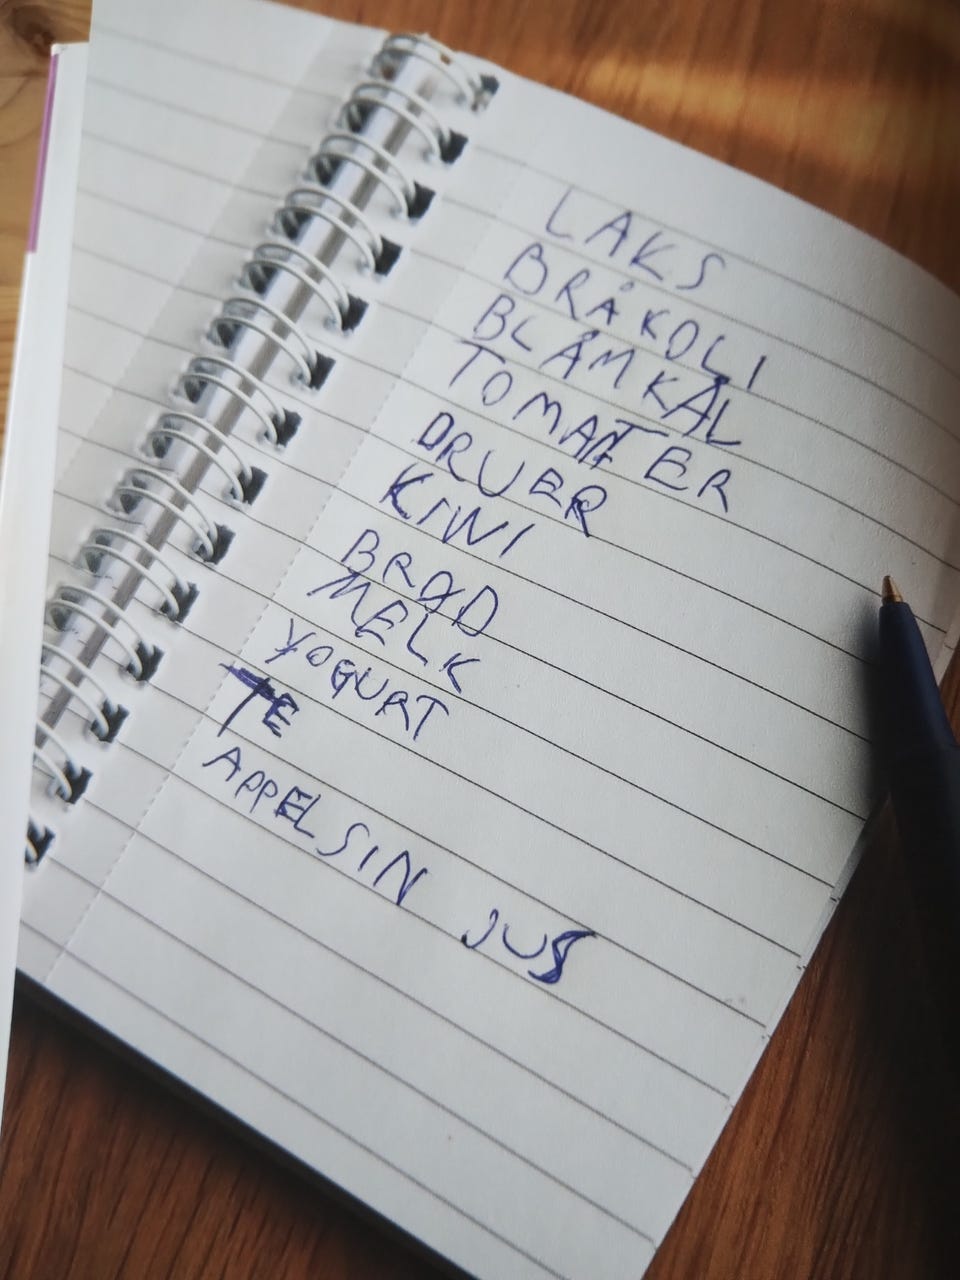 LAKS
BRÅKOLI
BLÅMKÅL
TOMATER
DRUER
KIWI
BRØD
MELK
YOGURT
TE
APPELSIN JUS